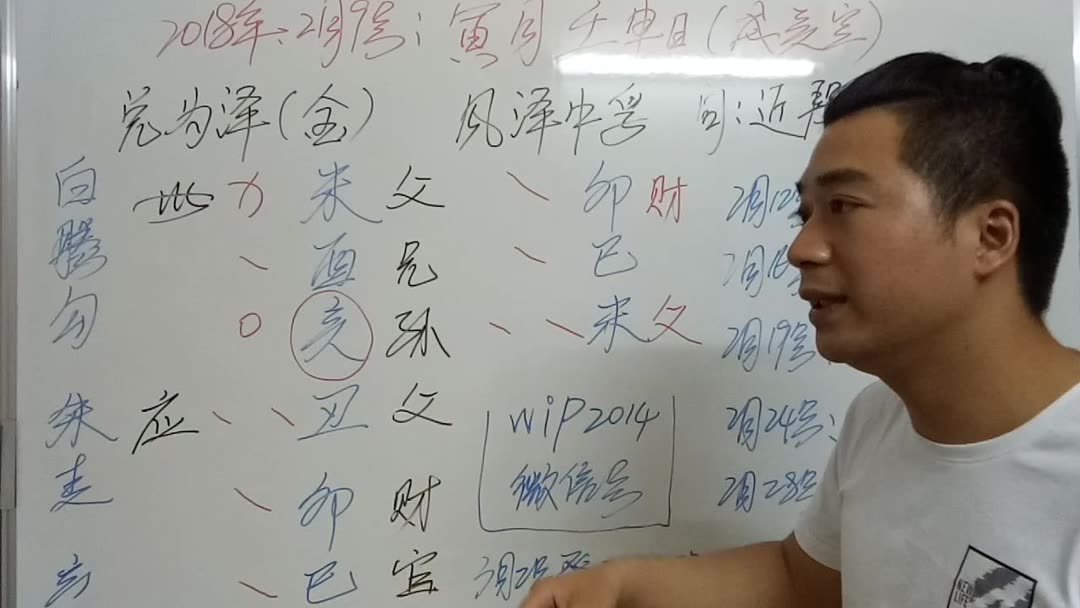 2018年、2月9号；寅月壬申日(戌亥空)
兑为泽(金) 风泽中孚 问：近
白 世 x 未 父 、 卯 财 2月12
腾 、 酉 兄 、 巳 2月
勾 o 亥 孙 、、 未 父 2月19号
朱 应 、、 丑 父 WiP2014 2月24号、
、 卯 财 微信号 2月28号
玄 、 巳 官 3月2号
NEW LIFE